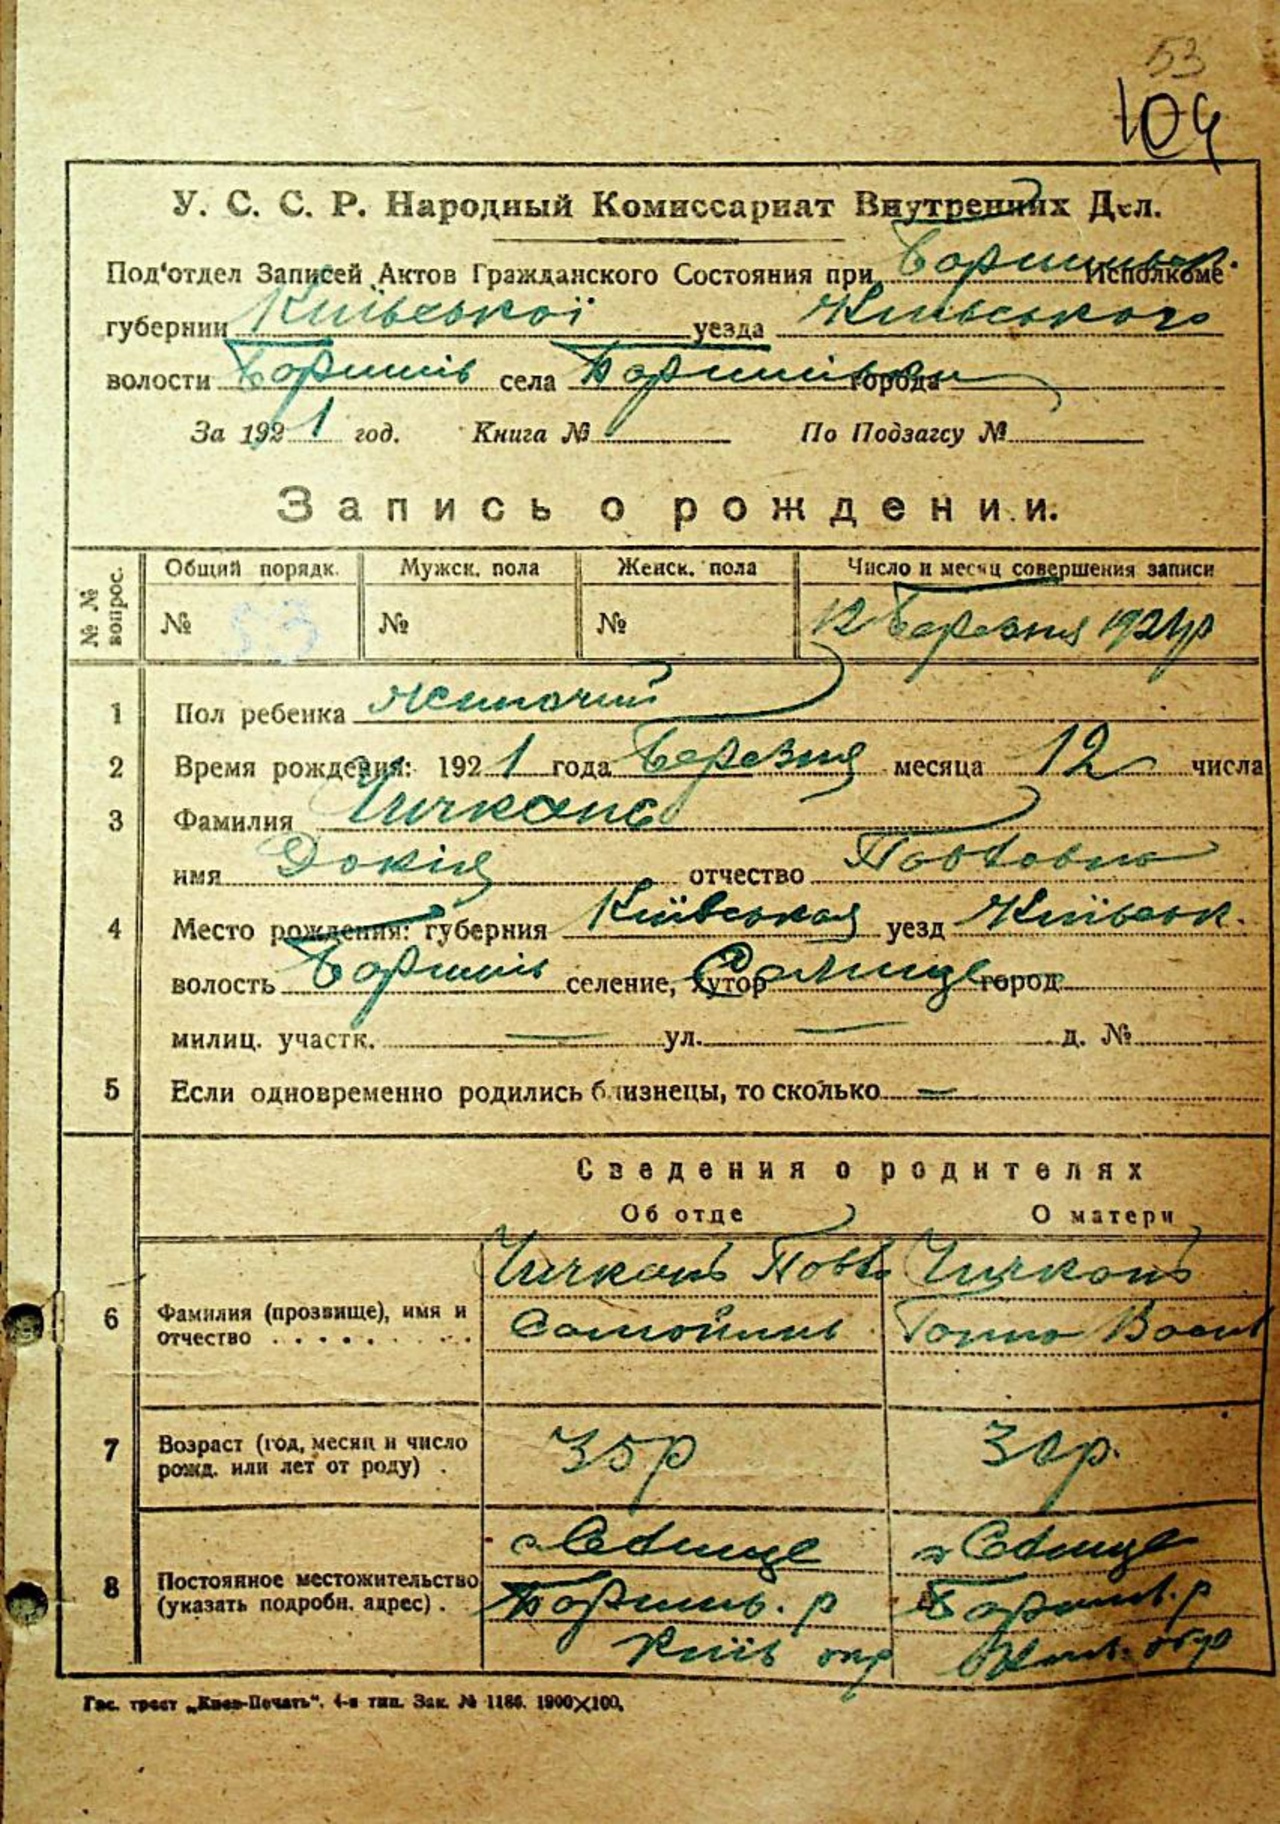 53
104
У. С. С. Р. Народный Комиссариат Внутренних Дел.
Под'отдел Записей Актов Гражданского Состояния при Исполкоме
губернии Київської уезда Київського
волости села города
За 1921 год. Книга № По Подзагсу №
Запись о рождении.
№ № вопрос. Общий порядк. Мужск. пола Женск. пола Число и месяц совершения записи
№ 53 № № 12 Березня 1921 р
1 Пол ребенка жиночий
2 Время рождения: 1921 года Березня месяца 12 числа
3 Фамилия Чичкань
имя Докія отчество Павловна
4 Место рождения: губерния Київськая уезд Київськ.
волость селение, хутор город
милиц. участк. — ул. — д. №
5 Если одновременно родились близнецы, то сколько —
Сведения о родителях
Об отце О матери
6 Фамилия (прозвище), имя и Чичкань Чичкань
отчество . . . . . . . . Самойлив Ганна Васил
7 Возраст (год, месяц и число
рожд. или лет от роду) . 35 р 30 р.
8 Постоянное местожительство
(указать подробн. адрес) .
Київ окр
Гос. трест „Киев-Печать“. 4-я тип. Зак. № 1186. 1900×100.